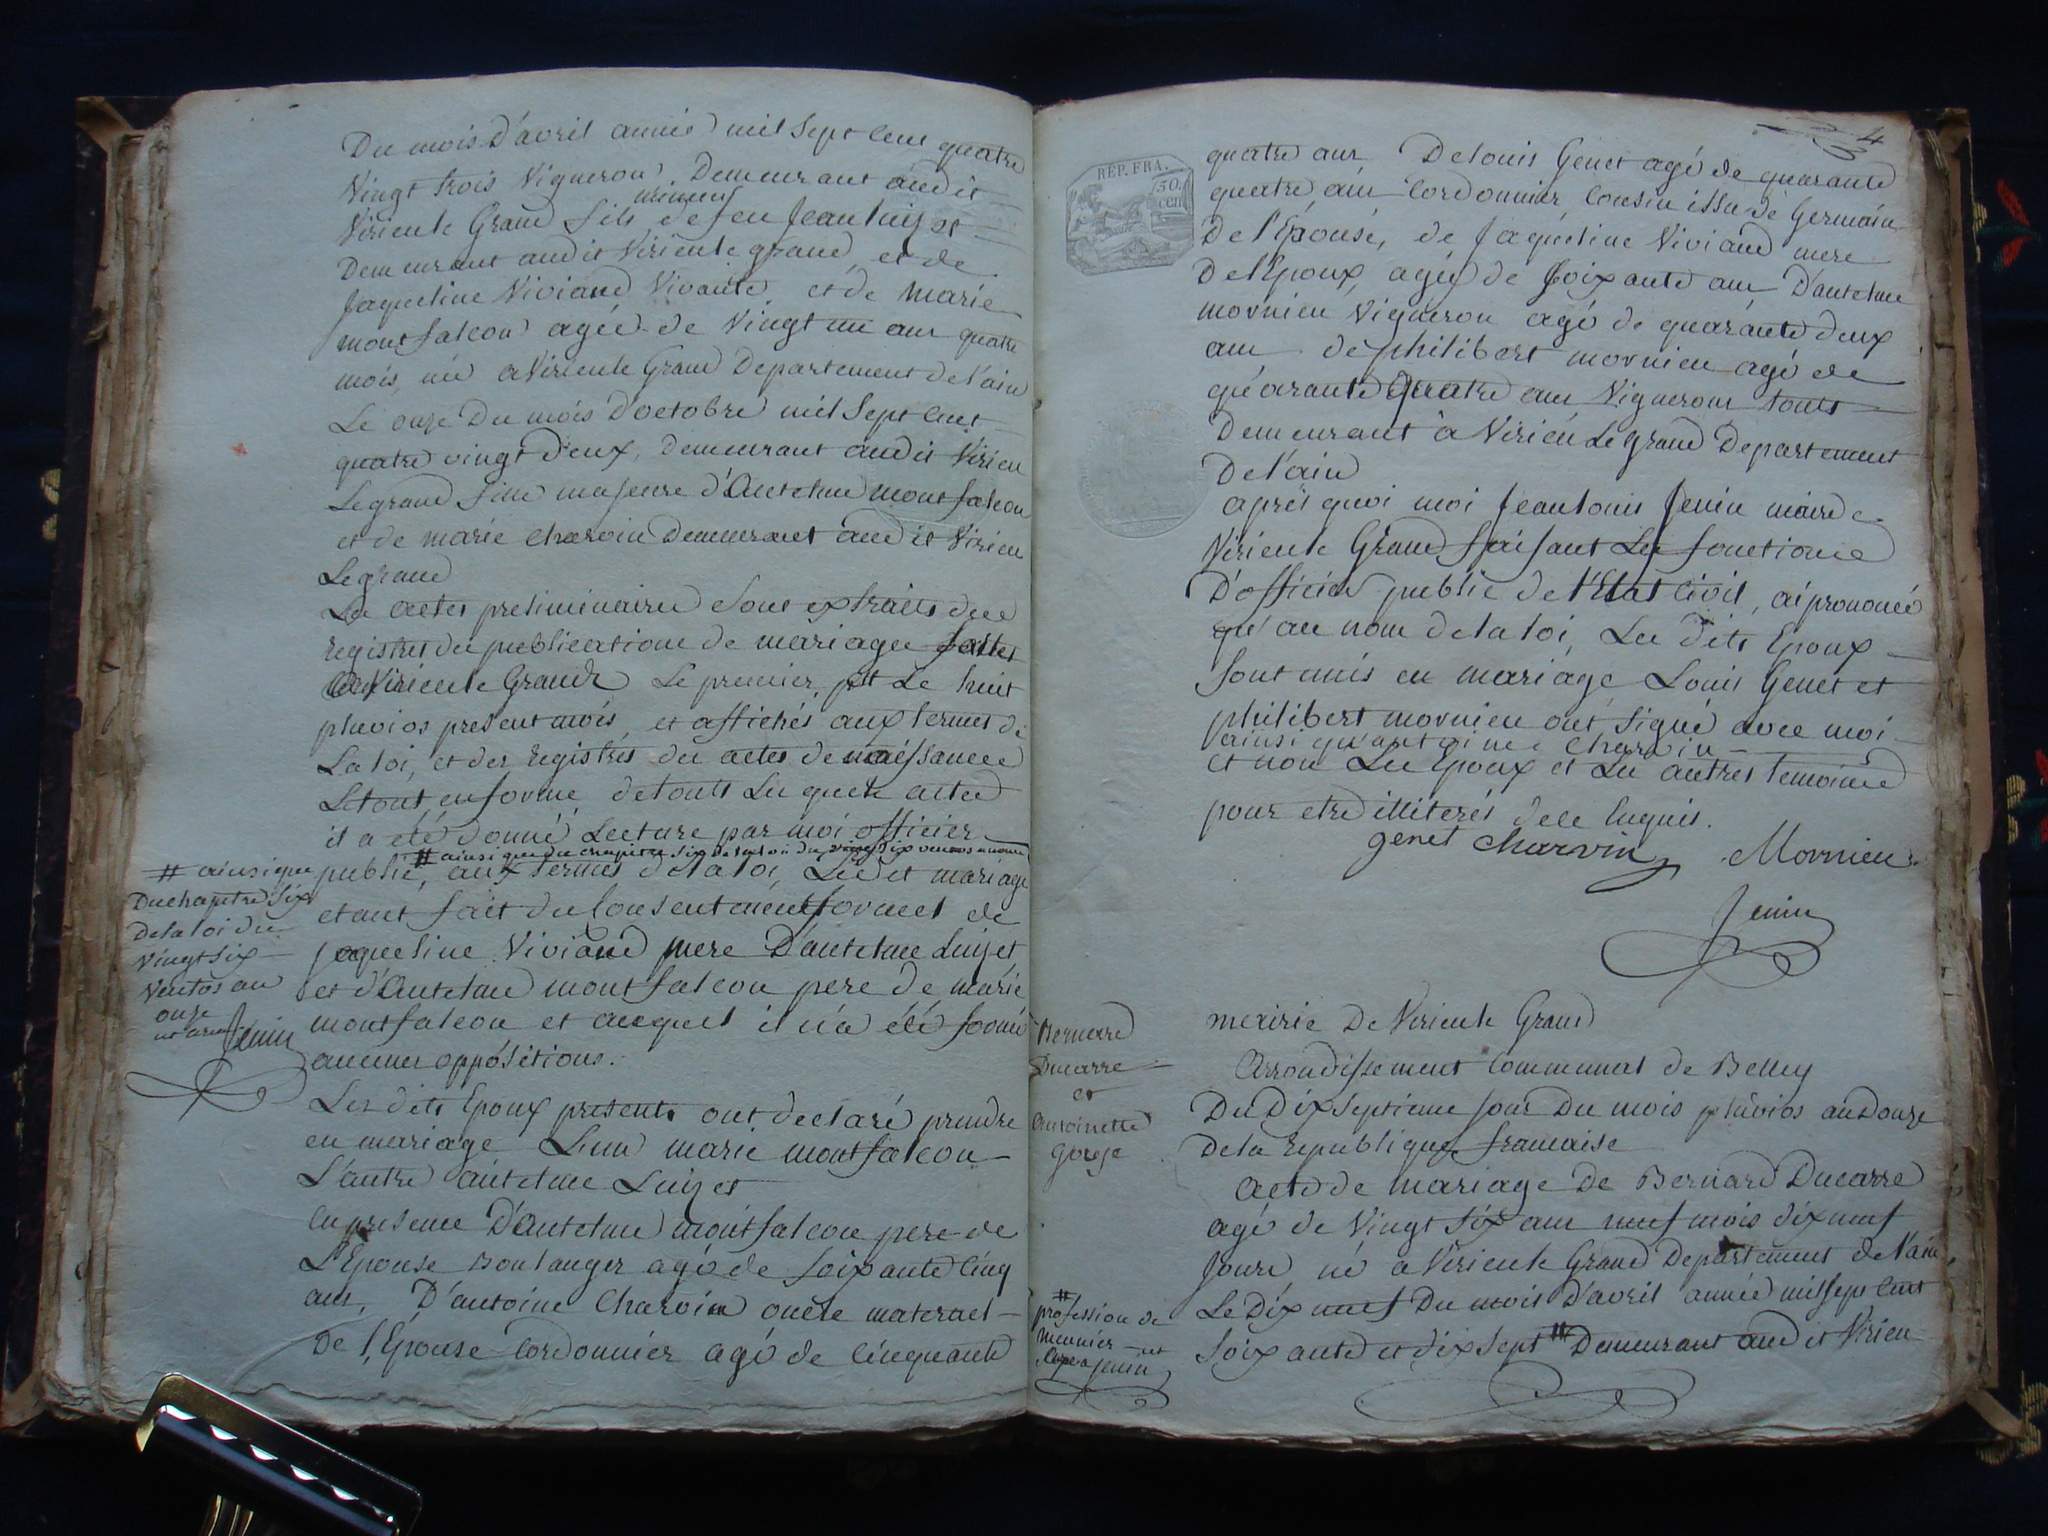 Du mois D'avril année mil sept cent quatre
Vingt trois Vigneron, Demeurant audit
mineur
Virieu le Grand fils de feu Jean luizet
Demeurant audit Virieu le grand, et de
Jaqueline Viviand Vivante, et de marie
montfalcon agée de Vingt un ans quatre
mois, née a Virieu le Grand Departement de l'ain
Le onze Du mois D'octobre mil sept cent
quatre vingt deux, demeurant audit Virieu
Le grand fille majeure d'Antelme montfalcon
et de marie charvin Demeurant audit Virieu
Le grand
Les actes preliminaires sont extraits des
registres des publications de mariages faites
a Virieu le Grand Le premier, et Le huit
pluvios present mois, et affichés aux termes de
La loi, et des registres des actes de naissances
Le tout en forme, de touts Les quels actes
il a eté donné Lecture par moi officier
# ainsi que du chapitre six de la loi du vingt six ventos an onze
public, aux termes de la loi, Le dit mariage
etant fait du Consentement formel de
jaqueline Viviand mere D'antelme Luizet
et d'Antelme montfalcon pere de marie
montfalcon et auquel il n'a été formé
aucunes oppositions.
Les dits Epoux presents ont declaré prendre
en mariage L'un marie montfalcon
L'autre antelme Luizet
En presence D'Antelme montfalcon pere de
L'Epouse Boulanger agé de soixante cinq
ans, D'antoine Charvin oncle maternel
De l'Epouse Cordonnier agé de cinquante
# ainsi que
Du chapitre six
de la loi du
vingt six
Ventos an
onze
Jenin
4
REP. FRA.
50.
cen
quatre ans De louis Genet agé de quarante
quatre ans Cordonnier, Cousin issu de Germain
De l'Epouse, de Jaqueline Viviand mere
De l'Epoux, agée de soixante ans D'antelme
mornieu Vigneron agé de quarante deux
ans de philibert mornieu agé de
quarante quatre ans Vignerons touts
Demeurant à Virieu Le grand Departement
De l'ain
après quoi moi Jean louis Jenin maire de
Virieu le Grand faisant Les fonctions
D'officier public de l'Etat Civil, ai prononcé
qu'au nom de la loi, Les dits Epoux
sont unis en mariage Louis Genet et
philibert mornieu ont signé avec moi
ainsi qu'antoine Charvin
et non Les Epoux et Les autres temoins
pour etre illiterés de ce Enquis.
genet charvin Mornieu
Jenin
Bernard
Ducarre
et
Antoinette
Gouje
mairie De Virieu le Grand
Arrondissement Communal de Belley
Du Dix septieme jour Du mois pluvios an Douze
De la republique francaise
Acte de mariage de Bernard Ducarre
agé de Vingt six ans neuf mois dix neuf
Jours, né a Virieu le Grand Departement de l'ain
Le Dix neuf Du mois D'avril année mil sept cent
soixante et dix sept # Demeurant audit Virieu
#
profession de
meunier
Jenin